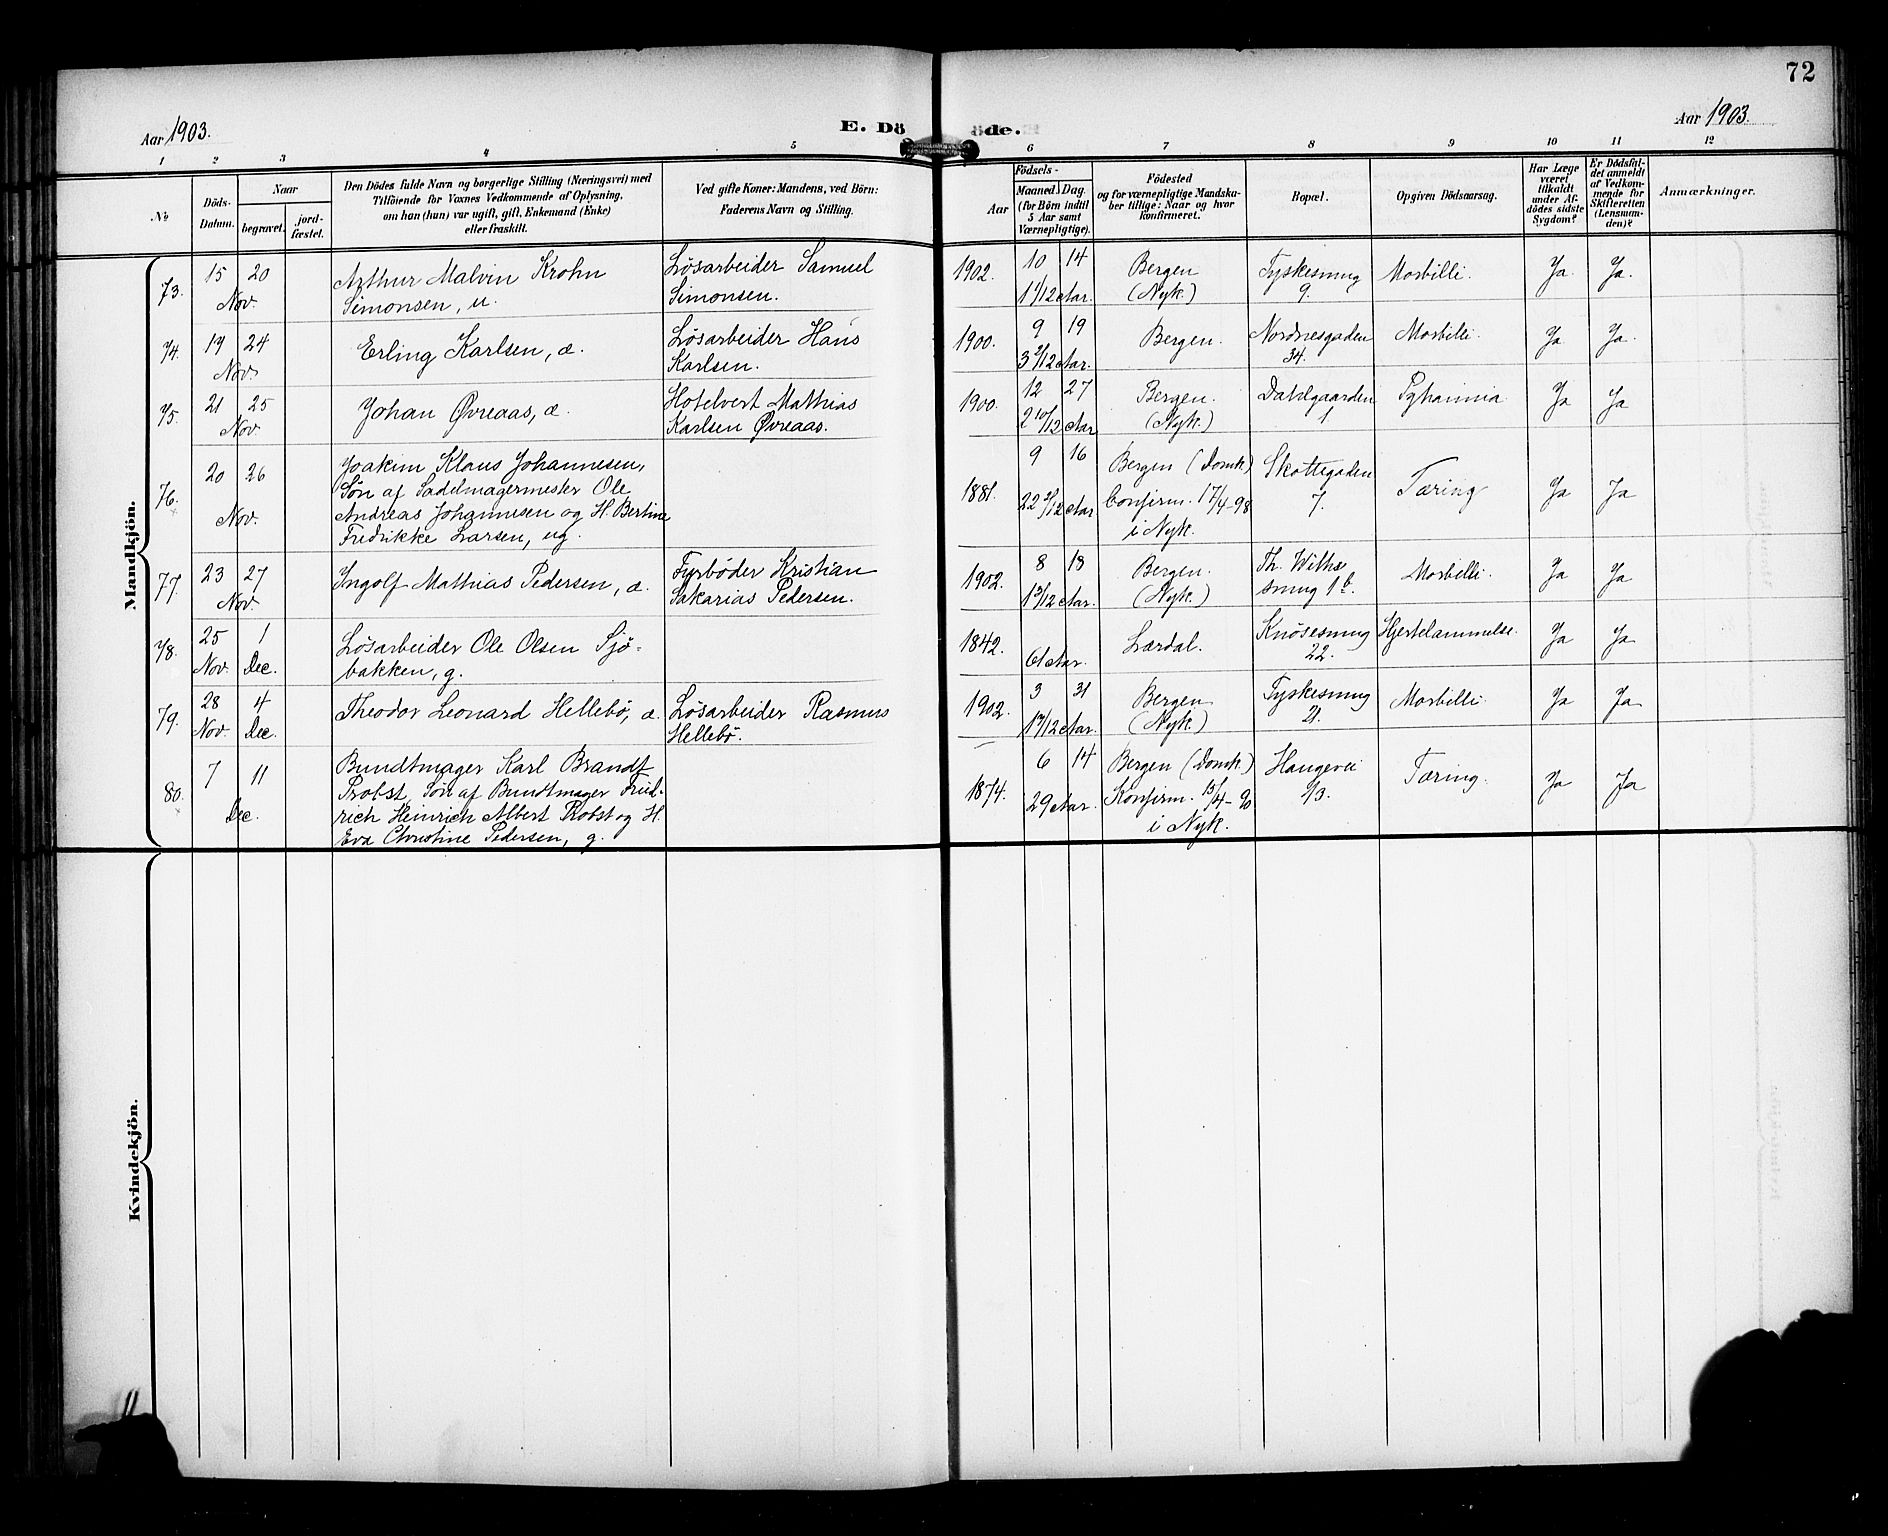 72
Aar 1903.
E. Dö
öde.
Aar 1903.
1 2 3 4 5 6 7 8 9 10 11 12
№
Döds-
Datum.
Naar
begravet.
jord-
fæstet.
Den Dödes fulde Navn og borgerlige Stilling (Næringsvei) med
Tilföiende for Voxnes Vedkommende af Oplysning,
om han (hun) var ugift, gift, Enkemand (Enke)
eller fraskilt.
Ved gifte Koner: Mandens, ved Börn:
Faderens Navn og Stilling.
Födsels-
Aar
Maaned, Dag.
(for Börn indtil
5 Aar samt
Værnepligtige).
Födested
og for værnepligtige Mandska-
ber tillige: Naar og hvor
konfirmeret.
Bopæl.
Opgiven Dödsaarsag.
Har Læge
været
tilkaldt
under Af-
dödes sidste
Sygdom?
Er Dödsfal-
det anmeldt
af Vedkom-
mende for
Skifteretten
(Lensman-
den)?
Anmærkninger.
Mandkjön.
73. 15 20 Arthur Malvin Krohn Løsarbeider Samuel 1902. 10 14 Bergen Tyskesmug Morbilli. Ja. Ja.
Nov. Simonsen, u. Simonsen. 1 1/12 Aar. (Nyk.) 9.
74. 19 24 Erling Karlsen, æ. Løsarbeider Hans 1900. 9 19 Bergen. Nordnesgaden Morbilli. Ja Ja.
Nov. Karlsen. 3 2/12 Aar. 34.
75. 21 25 Johan Øvreaas, æ. Hotelvert Mathias 1900. 12 27 Bergen. Dahlgaarden Pyhæmia Ja Ja
Nov. Karlsen Øvreaas. 2 10/12 Aar (Nyk.) 1
76. 20 26 Joakim Klaus Johannesen, 1881. 9 16 Bergen (Domk.) Skottegaden Tæring Ja Ja
Søn af Sadelmagermester Ole 22 2/12 Aar Confirm. 17/4-98 7.
Nov. Andreas Johannesen og H. Bertine i Nyk.
Fredrikke Larsen, ug.
77. 23 27 Ingolf Mathias Pedersen, æ. Fyrbøder Kristian 1902. 8 18 Bergen. Th. Wilhs Morbilli. Ja Ja
Nov Sakarias Pedersen. 1 3/12 Aar. (Nyk.) smug 1 b.
78. 25 1 Løsarbeider Ole Olsen Sjø- 1842. Lærdal. Knøsesmug Hjertelammelse. Ja Ja
Nov. Dec. bakken, g. 61 Aar. 22.
79. 28 4 Theodor Leonard Hellebø, æ. Løsarbeider Rasmus 1902. 3 31 Bergen Tyskesmug Morbilli. Ja Ja
Nov. Dec. Hellebø. 1 7/12 Aar. (Nyk.) 21.
80. 7 11 Bundtmager Karl Brandt 1874. 6 14 Bergen (Domk.) Haugevei Tæring. Ja Ja
Probst, Søn af Bundtmager Fried- 29 Aar. Konfirm. 13/4-90
Dec. rich Heinrich Albert Probst og H. i Nyk.
Eva Christine Pedersen, g.
Kvindekjön.